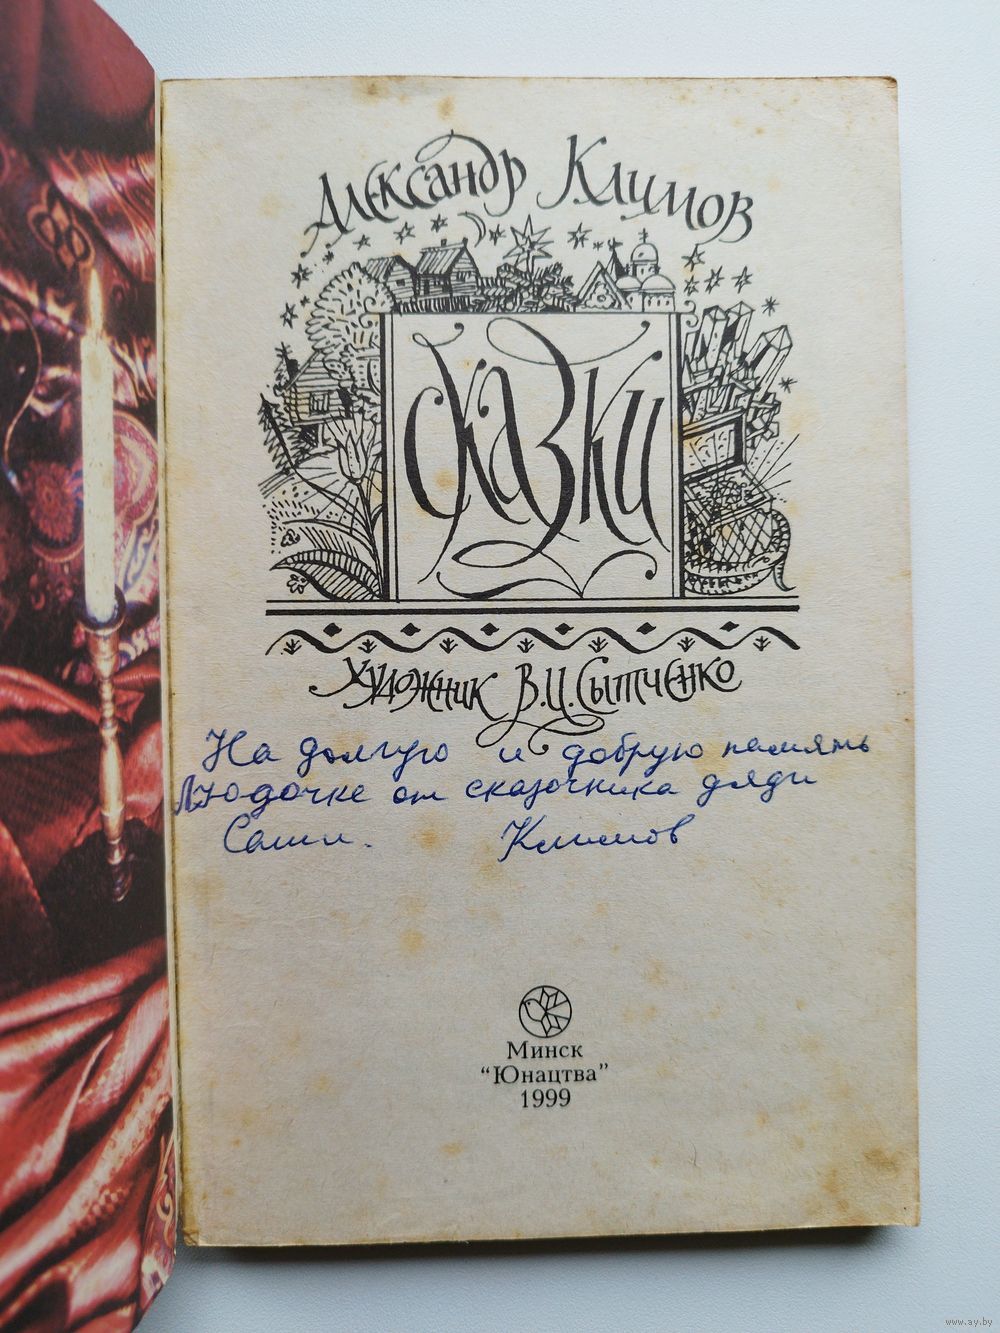 Александр Климов
Сказки
Художник В.И.Сытченко
На долгую и добрую память
Людочке от сказочника дяди
Саши. Климов
Минск
"Юнацтва"
1999
www.ay.by